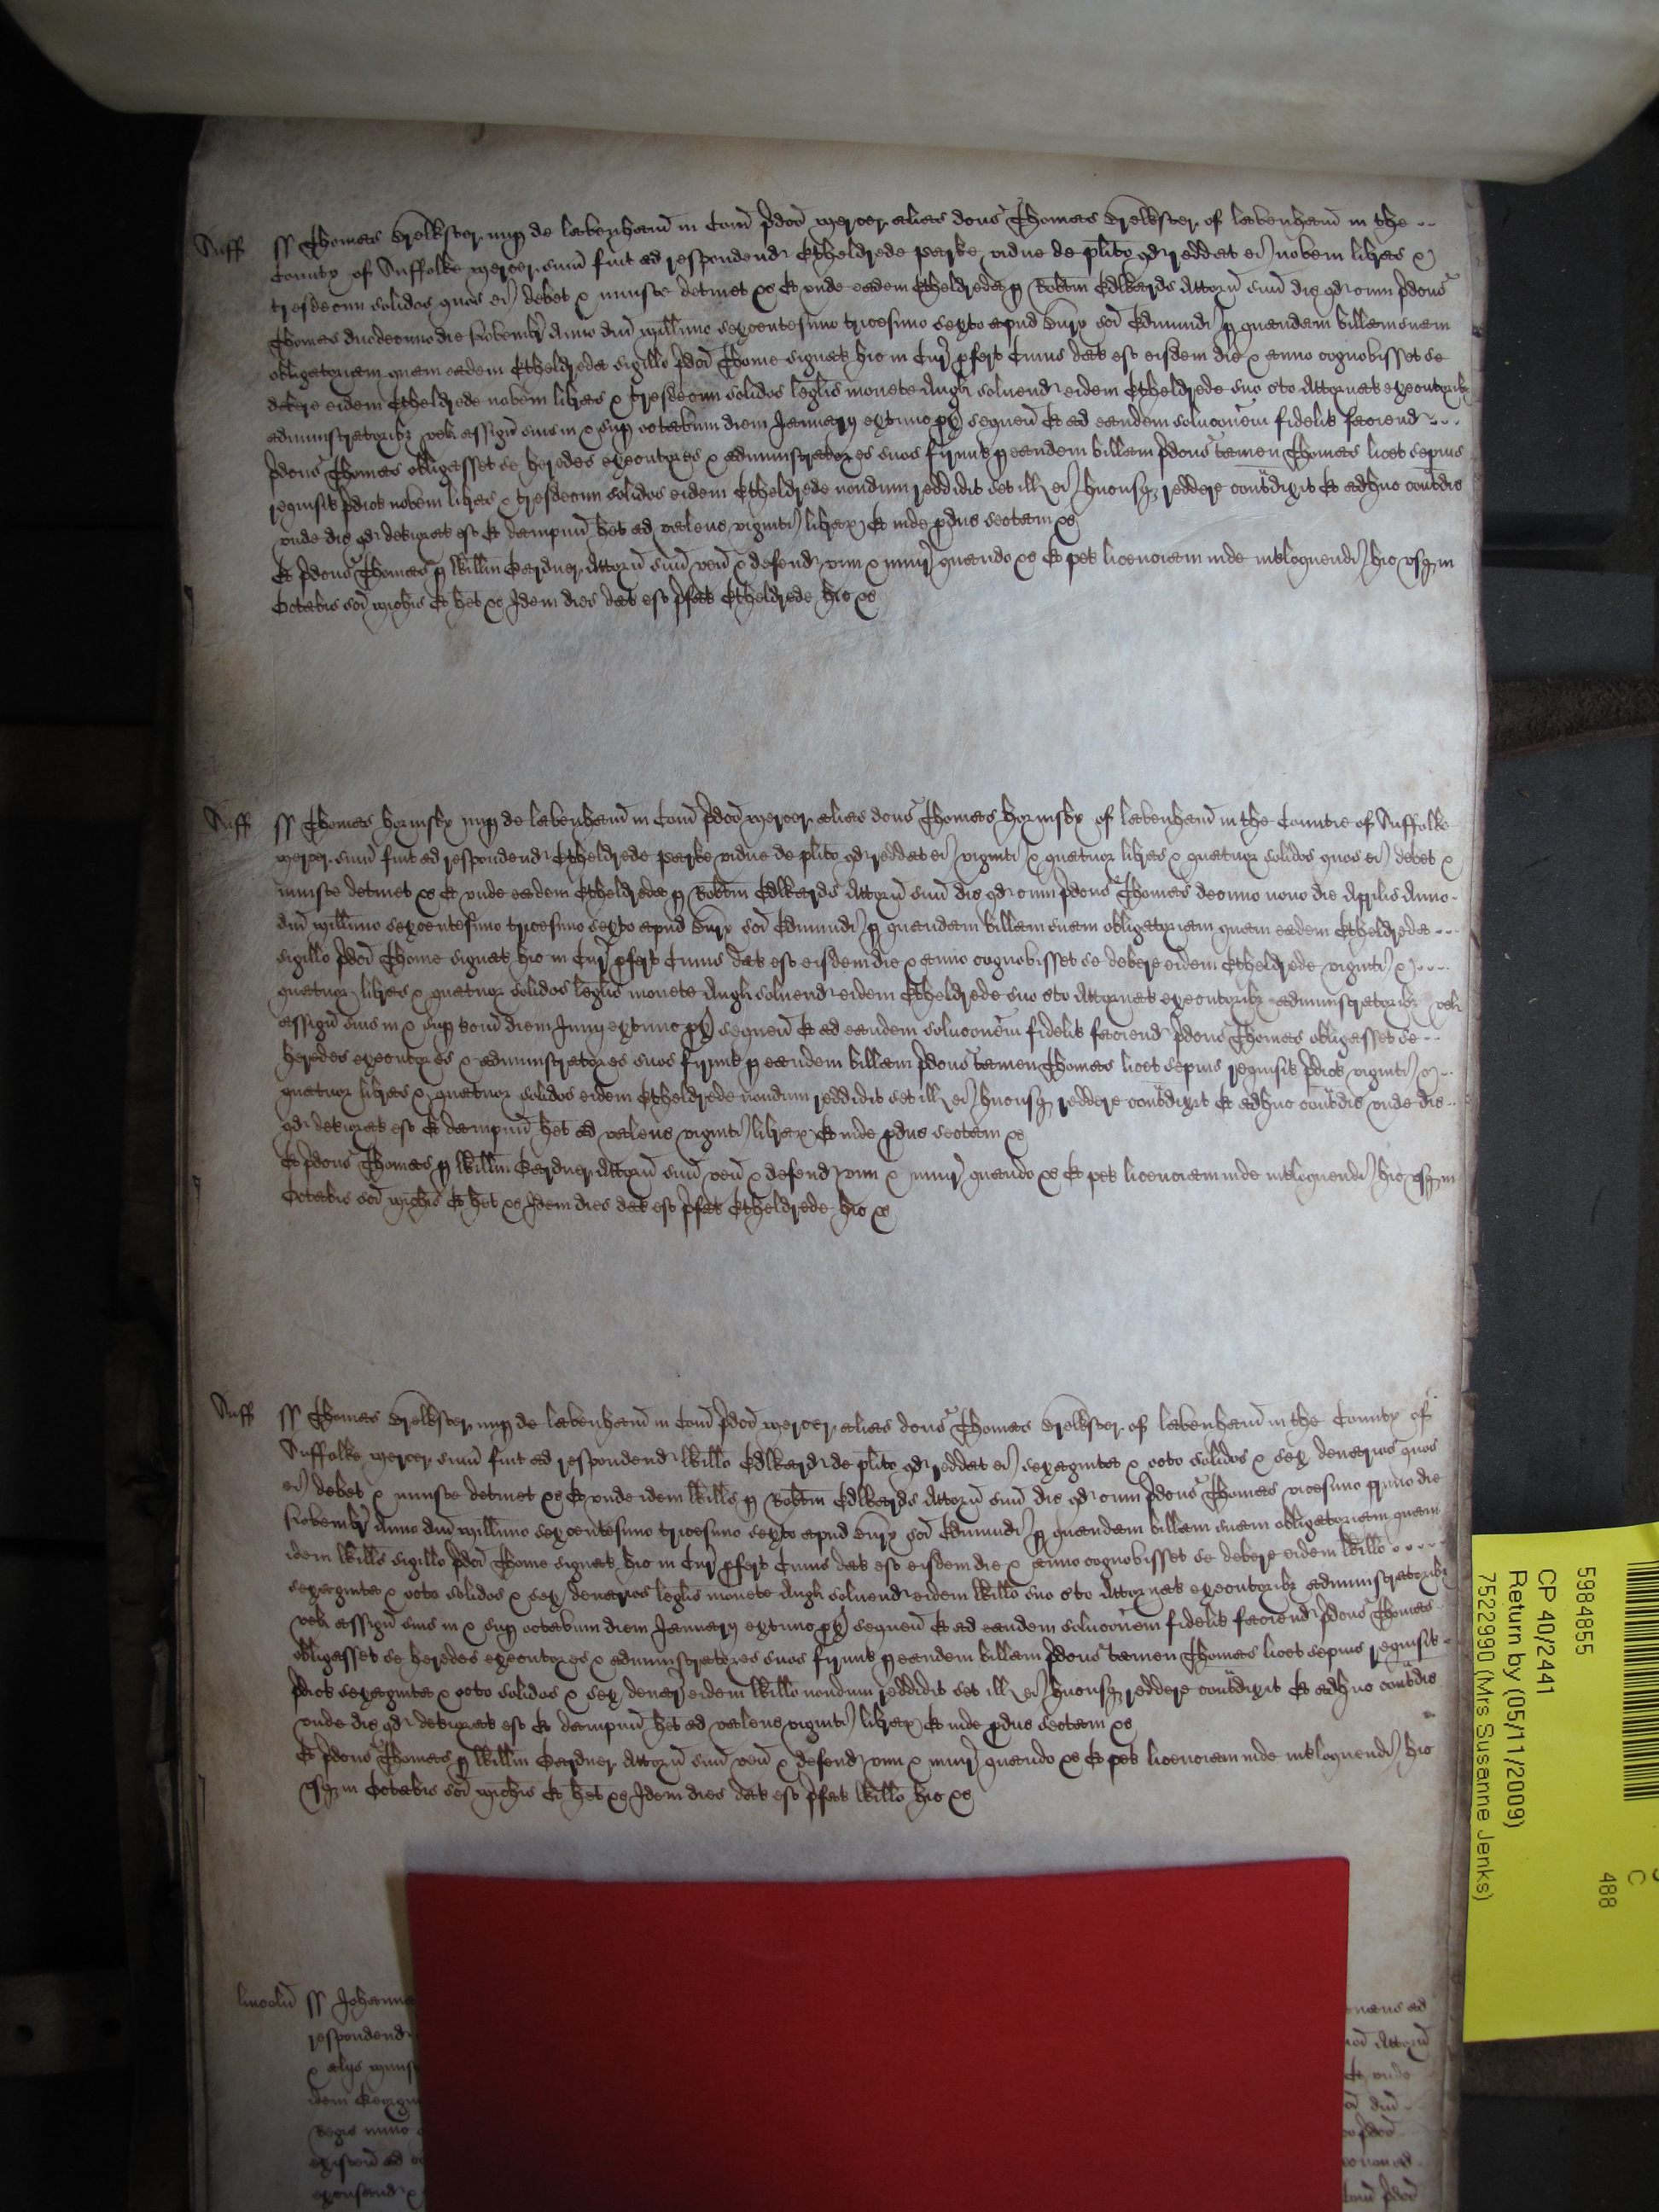 Suff ss Thomas Brewster nup de lavenham in Com pdco mercer alias dcus Thomas Brewster of lavenham in the
County of Suffolke mercer sum fuit ad respondend Etheldrede Parke vidue de plito qd reddat ei novem libras &
tresdecim solidos quos ei debet & iniuste detinet &c Et unde eadem Etheldreda p Robtm Edwards Attorn suum dic qd cum pdcus
Thomas duodecimo die Novembr Anno dni millimo sexcentesimo tricesimo sexto apud Bury sci Edmundi p quandam billam suam
obligatoriam quam eadem Etheldreda sigillo pdci Thome signat hic in Cur pfert Cuius dat est eisdem die & anno cognovisset se
debere eidem Etheldrede novem libras & tresdecim solidos legalis monete Angl solvend eidem Etheldrede suo cto Attornat executoribz
administratoribz vel assign suis in & sup octavum diem Januarij extunc px sequen Et ad eandem solucoem fidelit faciend
pdcus Thomas obligasset se heredes executores & administratores suos firmit p eandem billam pdcus tamen Thomas licet sepius
requisit pdict novem libras & tresdecim solidos eidem Etheldrede nondum reddidit set ill ei hucusqz reddere contradixit Et adhuc contradic
unde dic qd deteriorat est Et dampnu het ad valenc viginti librar Et inde pduc sectam &c
Et pdcus Thomas p Willm Gardner Attorn suum ven & defend vim & iniur quando &c Et pet licenciam inde interloquendi hic usqz in
Octabis sci Michis Et het &c Idem dies dat est pfat Etheldrede hic &c
Suff ss Thomas Hornsby nup de lavenham in Com pdco mercer alias dcus Thomas Hornsby of lavenham in the Countie of Suffolke
mercer sum fuit ad respondend Etheldrede Parke vidue de plito qd reddat ei viginti & quatuor libras & quatuor solidos quos ei debet &
iniuste detinet &c Et unde eadem Etheldreda p Robtm Edwards Attorn suum dic qd cum pdcus Thomas decimo nono die Aprilis Anno
dni millimo sexcentesimo tricesimo sexto apud Bury sci Edmundi p quandam billam suam obligatoriam quam eadem Etheldreda
sigillo pdci Thome signat hic in Cur pfert Cuius dat est eisdem die & anno cognovisset se debere eidem Etheldrede viginti &
quatuor libras & quatuor solidos legalis monete Angl solvend eidem Etheldrede suo cto Attornat executoribz administratoribz vel
assign suis in & sup diem Junij extunc px sequen Et ad eandem solucoem fidelit faciend pdcus Thomas obligasset se
heredes executores & administratores suos firmit p eandem billam pdcus tamen Thomas licet sepius requisit pdict viginti &
quatuor libras & quatuor solidos eidem Etheldrede nondum reddidit set ill ei hucusqz reddere contradixit Et adhuc contradic unde dic
qd deteriorat est Et dampnu het ad valenc viginti librar Et inde pduc sectam &c
Et pdcus Thomas p Willm Gardner Attorn suum ven & defend vim & iniur quando &c Et pet licenciam inde interloquendi hic usqz in
Octabis sci Michis Et het &c Idem dies dat est pfat Etheldrede hic &c
Suff ss Thomas Brewster nup de lavenham in Com pdco mercer alias dcus Thomas Brewster of lavenham in the County of
Suffolke mercer sum fuit ad respondend Willo Edward de plito qd reddat ei sexaginta & octo solidos & sex denarios quos
ei debet & iniuste detinet &c Et unde idem Willus p Robtm Edwards Attorn suum dic qd cum pdcus Thomas vicesimo primo die
Novembr Anno dni millimo sexcentesimo tricesimo sexto apud Bury sci Edmundi p quandam billam suam obligatoriam quam
idem Willus sigillo pdci Thome signat hic in Cur pfert Cuius dat est eisdem die & anno cognovisset se debere eidem Willo
sexaginta & octo solidos & sex denarios legalis monete Angl solvend eidem Willo suo cto Attornat executoribz administratoribz
vel assign suis in & sup octavum diem Januarij extunc px sequen Et ad eandem solucoem fidelit faciend pdcus Thomas
obligasset se heredes executores & administratores suos firmit p eandem billam pdcus tamen Thomas licet sepius requisit
pdict sexaginta & octo solidos & sex denar eidem Willo nondum reddidit set ill ei hucusqz reddere contradixit Et adhuc contradic
unde dic qd deteriorat est Et dampnu het ad valenc viginti librar Et inde pduc sectam &c
Et pdcus Thomas p Willm Gardner Attorn suum ven & defend vim & iniur quando &c Et pet licenciam inde interloquendi hic
usqz in Octabis sci Michis Et het &c Idem dies dat est pfat Willo hic &c
lincoln ss Johanne ad
respondend Attorn
& alijs Et unde
idem Georgiu dni
Regis nunc pdco
ad
pdco
5984855
CP 40/2441
Return by (05/11/2009)
7522990 (Mrs Susanne Jenks)
C
488